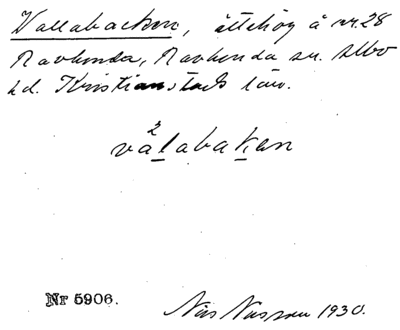 Vallabacken, ättehög å nr. 28
Ravlunda, Ravlunda sn. Albo
hd. Kristianstads län.
2
valabakan
Nr 5906.
Nils 1930.